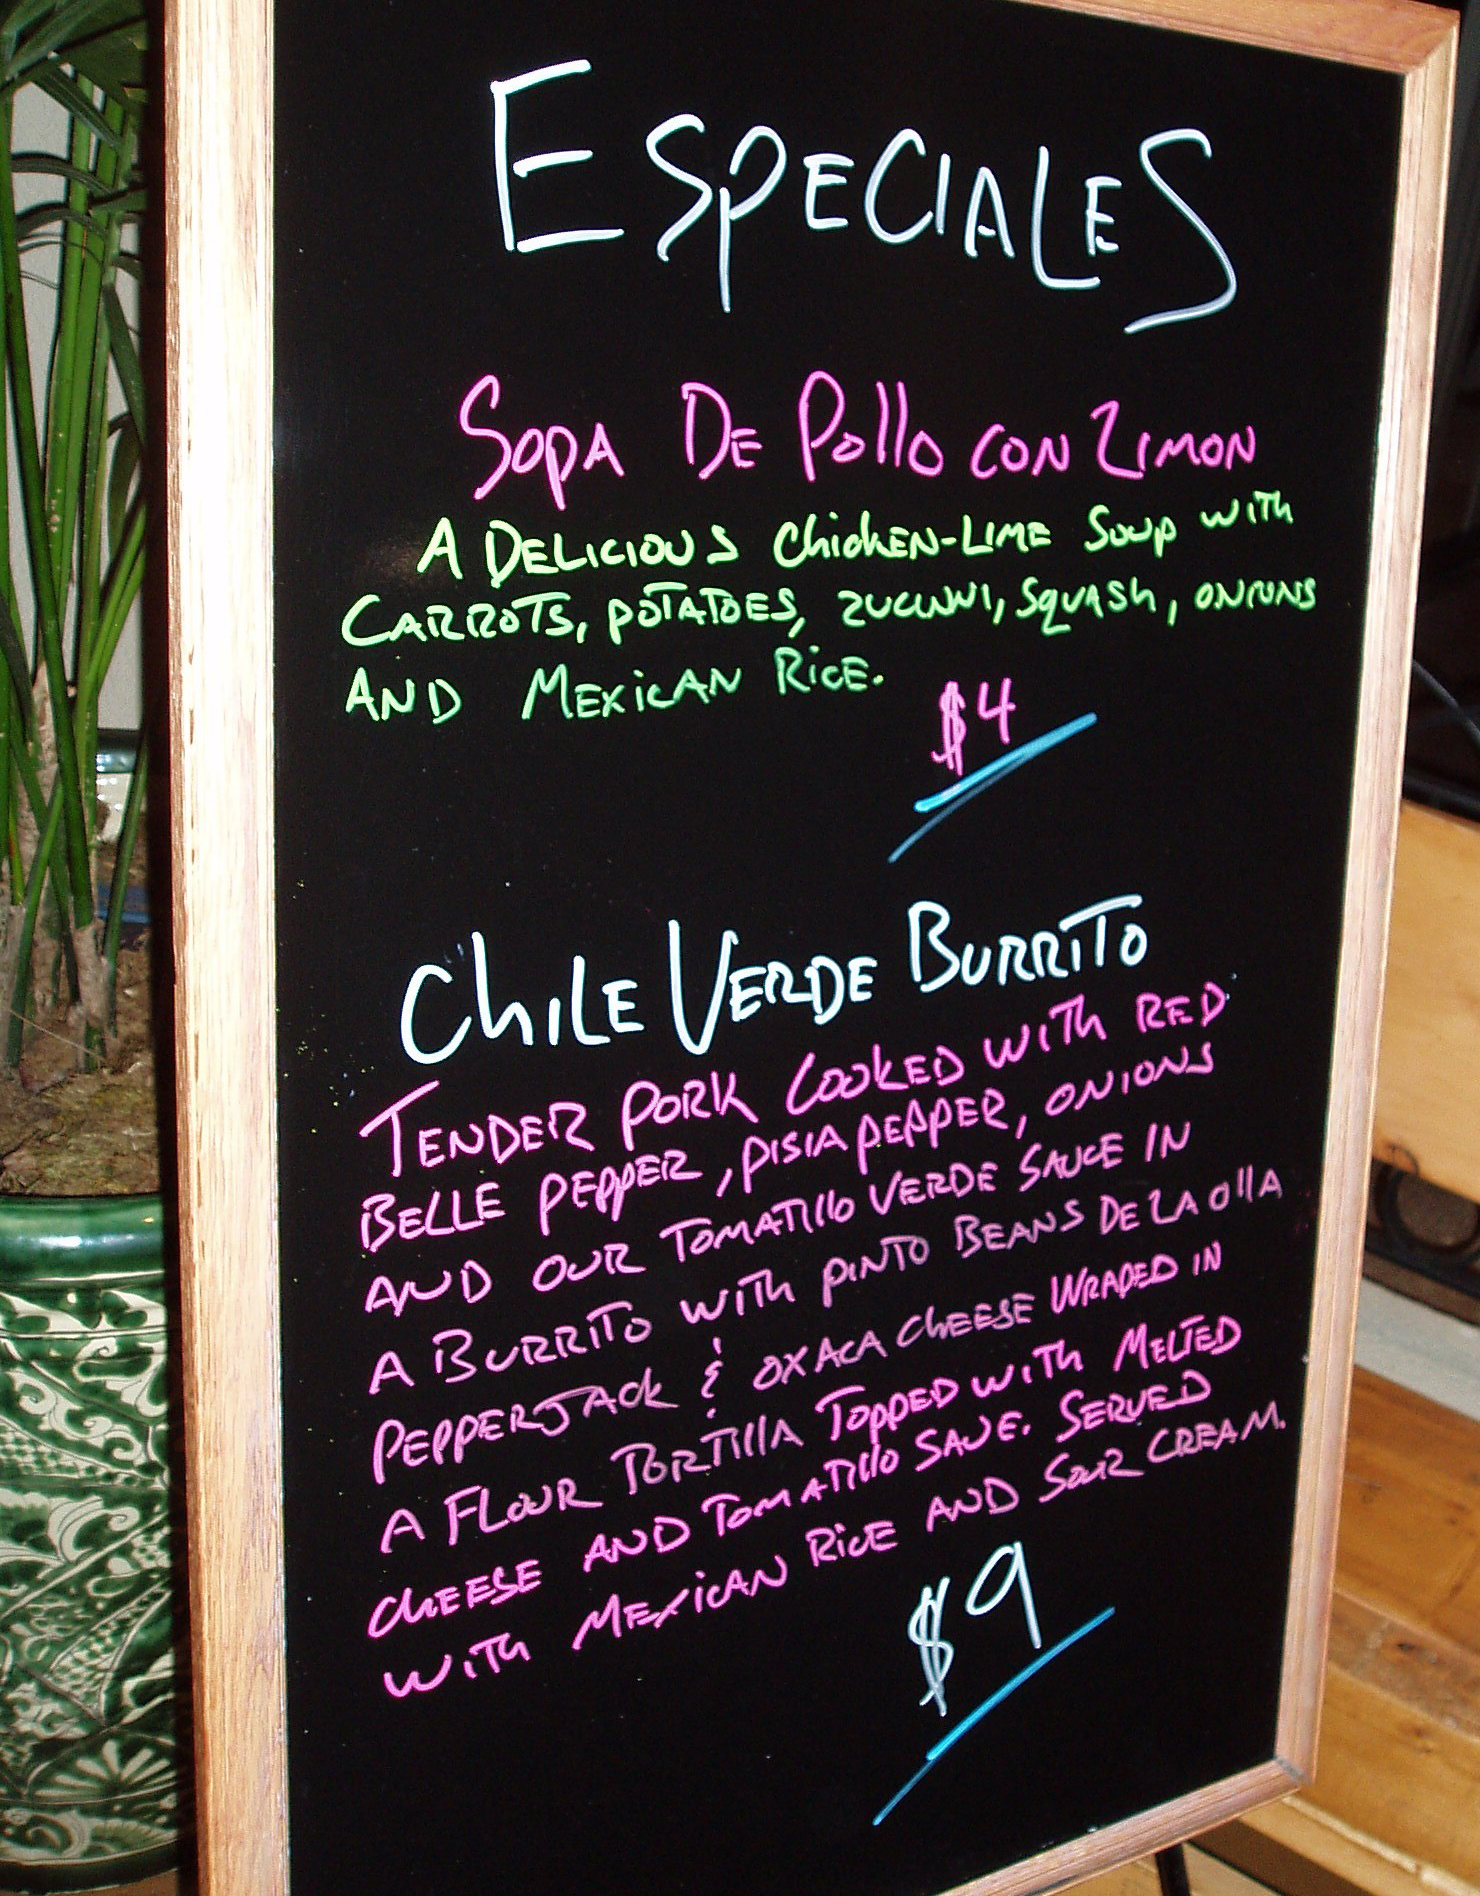 ESPECIALES
SOPA DE POllO CON LIMON
A DELICIOUS ChickEN-LIME SOUP WITH
CARROTS, POTATOES, ZUCINNI, SQUASH, ONIONS
AND MEXICAN RICE.
$4
ChILE VERDE BURRITO
TENDER PORK COOKED WITH RED
BELLE PEPPER, PISIA PEPPER, ONIONS
AND OUR TOMATILLO VERDE SAUCE IN
A BURRITO WITH PINTO BEANS DE LA OllA
PEPPERJACK & OXACA CHEESE WRAPED IN
A FLOUR TORTILLA TOPPED WITH MELTED
CHEESE AND TOMATILLO SAUE. SERVED
WITH MEXICAN RICE AND SOUR CREAM.
$9